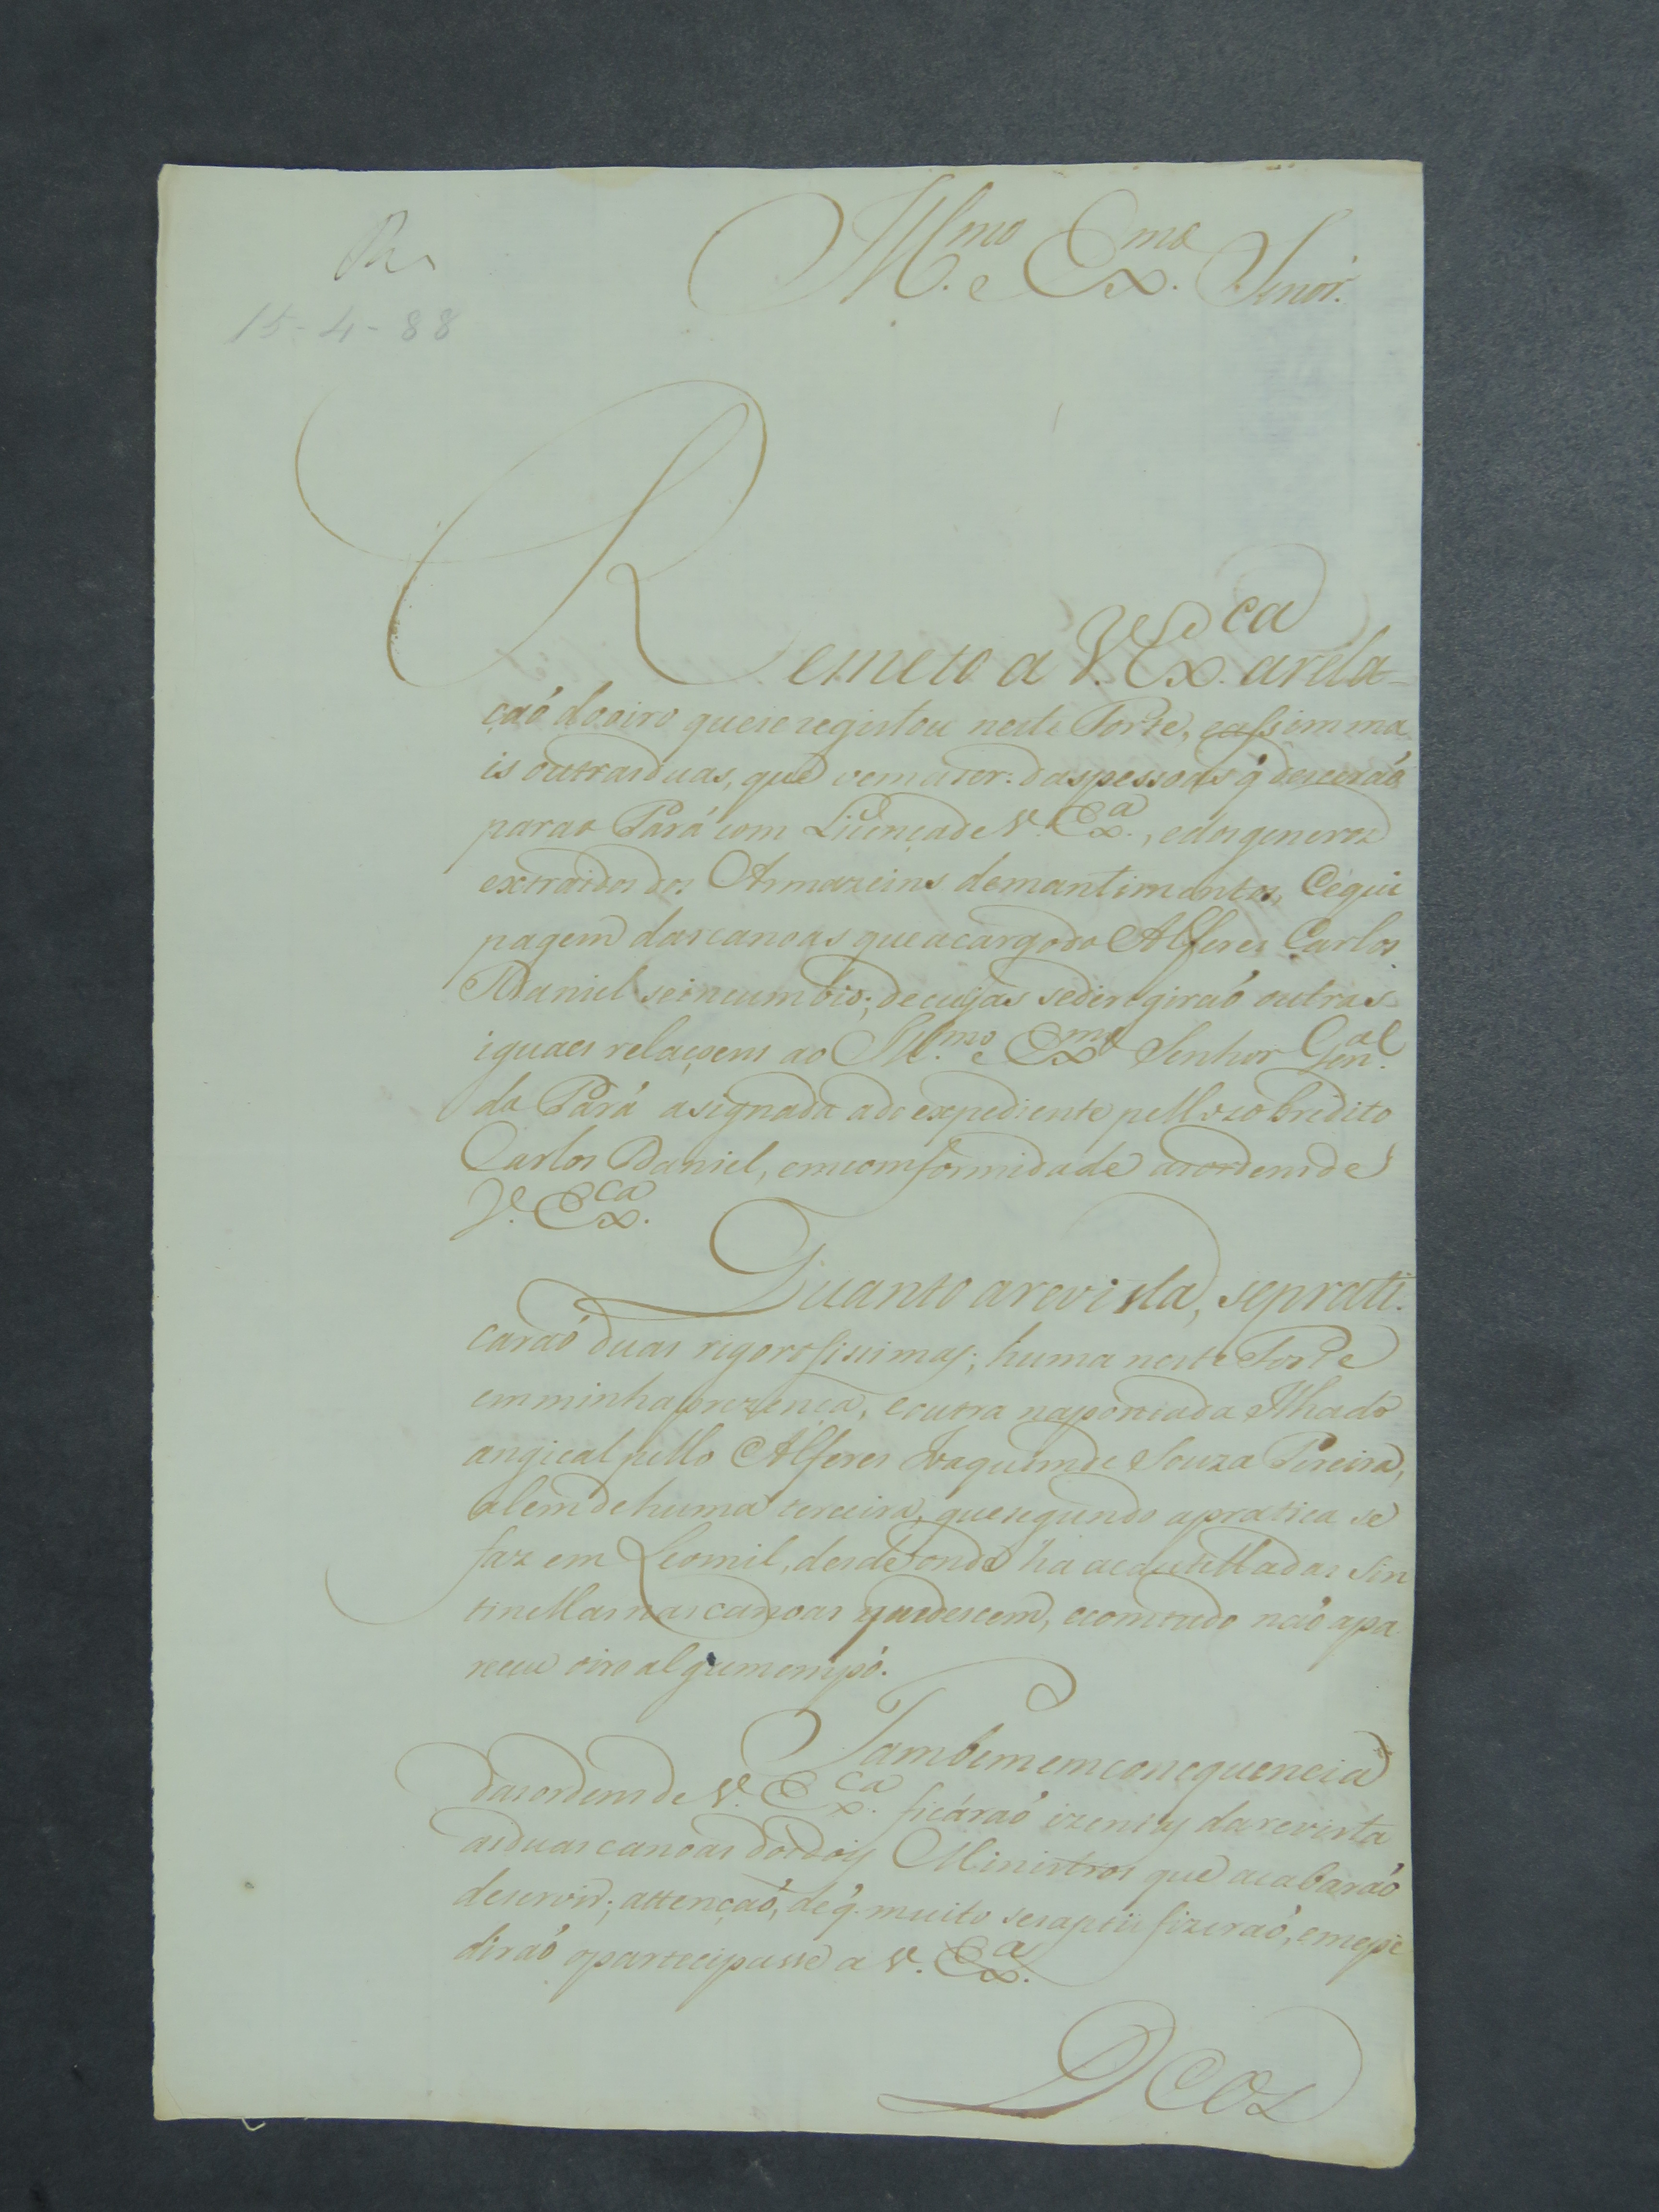 Ill.mo e Ex.mo Senór.
15-4-88
Remeto a V. Ex.ca arela-
çaó do oiro que se registou neste Forte, eassim ma
is outras duas, que vem a ser: das pessoas q̃ desceráõ
para o Pará com Licença de V. Ex.a, e dos generos
extraidos dos Armazeins demantimentos, Eequi
pagem das canoas que a cargo do Alferes Carlos
Daniel se incumbio; de cujas se derigiraó outras
iguaes relaçoens ao Ill.mo e Ex.mo Senhor Gen.al
do Pará asignada ado expediente pello sobredito
Carlos Daniel, em comformidade as ordens de
V. Ex.ca
Quanto a revista, se prati-
caraó duas rigorosissimas; huma neste Forte
em minha prezença, e outra na ponta da Ilha do
angical pello Alferes Joaquim de Souza Pereira,
alem de huma terceira, que segundo a pratica se
faz em Leomil, desde onde ha acautelladas Sin
tinellas nas canoas que descem, e com tudo naó apa
receu oiro algum em pó.
Tambem em conequencia
das ordens de V. Ex.ca ficáraó izentas da revista
as duas canoas dos doys Ministros que acabaraó
de servir; attençaó, de q̃ muito se captivizeraó, e me pe
diraó o partecipasse a V. Ex.a
Deos